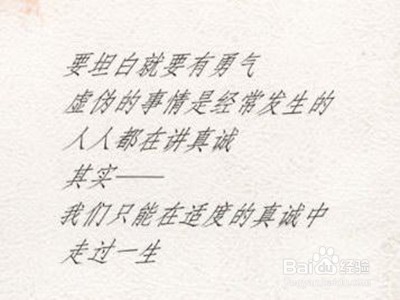 要坦白就要有勇气
虚伪的事情是经常发生的
人人都在讲真诚
其实——
我们只能在适度的真诚中
走过一生
Baidu 经验